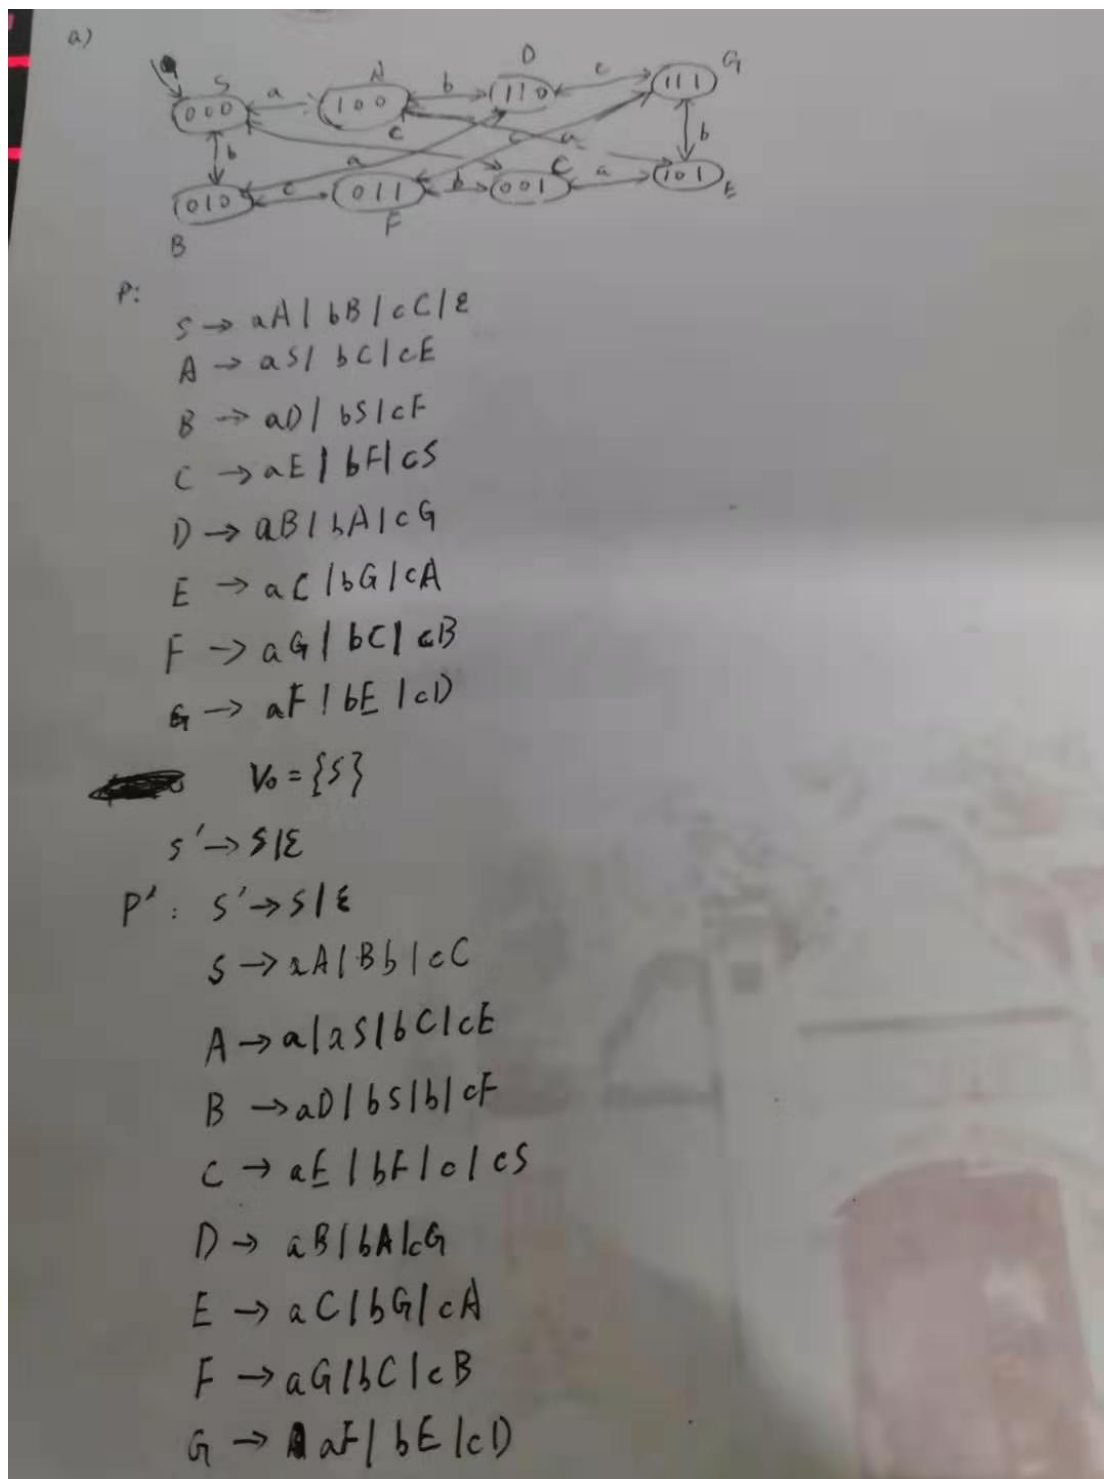 a)
S A D G
000 a 100 b 110 c 111
b c a c a b
010 c 011 b 001 a 101
B F C E
P:
S → aA | bB | cC | ε
A → aS | bC | cE
B → aD | bS | cF
C → aE | bF | cS
D → aB | bA | cG
E → aC | bG | cA
F → aG | bC | cB
G → aF | bE | cD
V₀ = {S}
S' → S | ε
P': S' → S | ε
S → aA | Bb | cC
A → a | aS | bC | cE
B → aD | bS | b | cF
C → aE | bF | c | cS
D → aB | bA | cG
E → aC | bG | cA
F → aG | bC | cB
G → aF | bE | cD